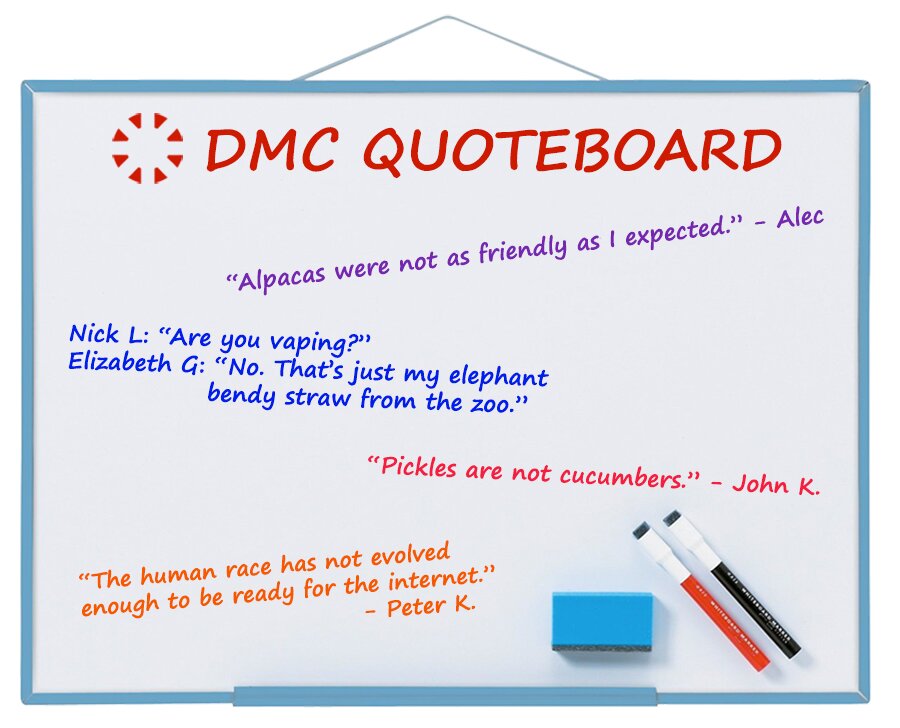 DMC QUOTEBOARD
“Alpacas were not as friendly as I expected.” - Alec
Nick L: “Are you vaping?”
Elizabeth G: “No. That’s just my elephant
bendy straw from the zoo.”
“Pickles are not cucumbers.” - John K.
“The human race has not evolved
enough to be ready for the internet.”
- Peter K.
WHITEBOARD MARKER
WHITEBOARD MARKER